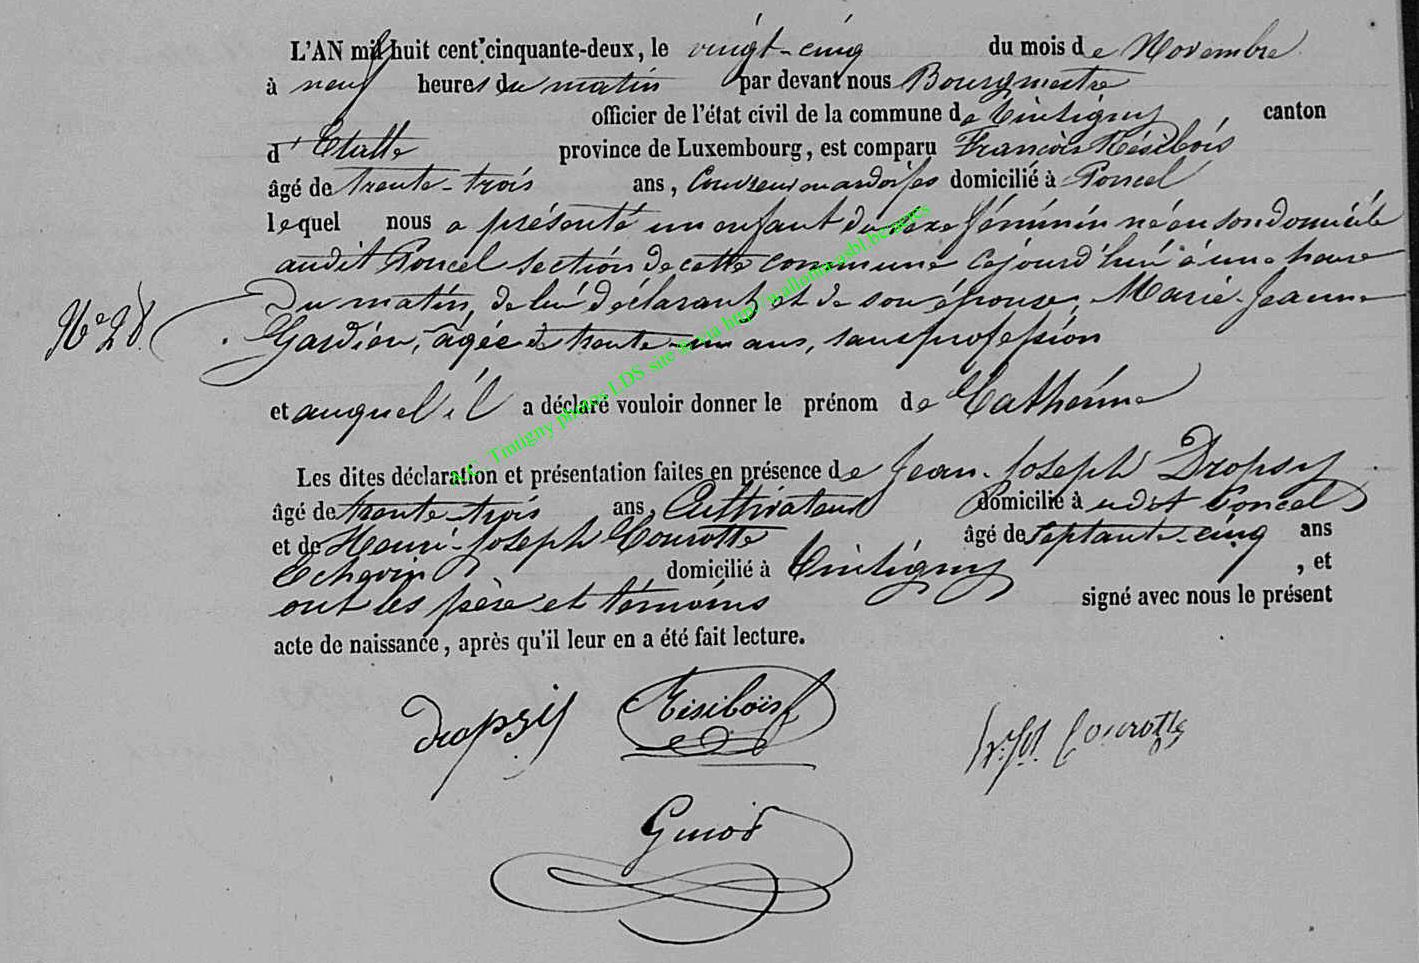 L'AN mil huit cent cinquante-deux, le vingt-cinq du mois de Novembre
à neuf heures du matin par devant nous Bourgmestre
officier de l'état civil de la commune de Tintigny canton
d'Etalle province de Luxembourg, est comparu François Résibois
âgé de trente-trois ans, Couvreur en ardoises domicilié à Poncel
lequel nous a présenté un enfant du sexe féminin né en son domicile
audit Poncel section de cette commune cejourd'hui à une heure
du matin, de lui déclarant et de son épouse, Marie-Jeanne
Nº 28. Gardien, âgée de trente-un ans, sans profession
et auquel il a déclaré vouloir donner le prénom de Catherine
Les dites déclaration et présentation faites en présence de Jean-Joseph Dropsy
âgé de trente-trois ans, Cultivateur domicilié à udit Poncel
et de Henri-Joseph Courotte âgé de septante-cinq ans
Echevin domicilié à Tintigny, et
ont les père et témoins signé avec nous le présent
acte de naissance, après qu'il leur en a été fait lecture.
Dropsy Résibois h.jh. Courotte
Guiot
A.C. Tintigny photos LDS site & via http://wallonia-asbl.be/actes